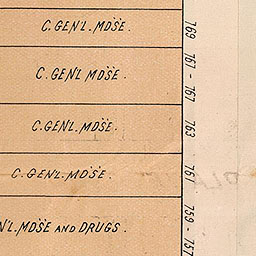 C. GEN'L. MDSE.
769
C. GEN'L MDSE.
767 - 767
C. GEN'L MDSE.
763
C. GEN'L. MDSE.
761
N'L. MDSE AND DRUGS.
759 - 757